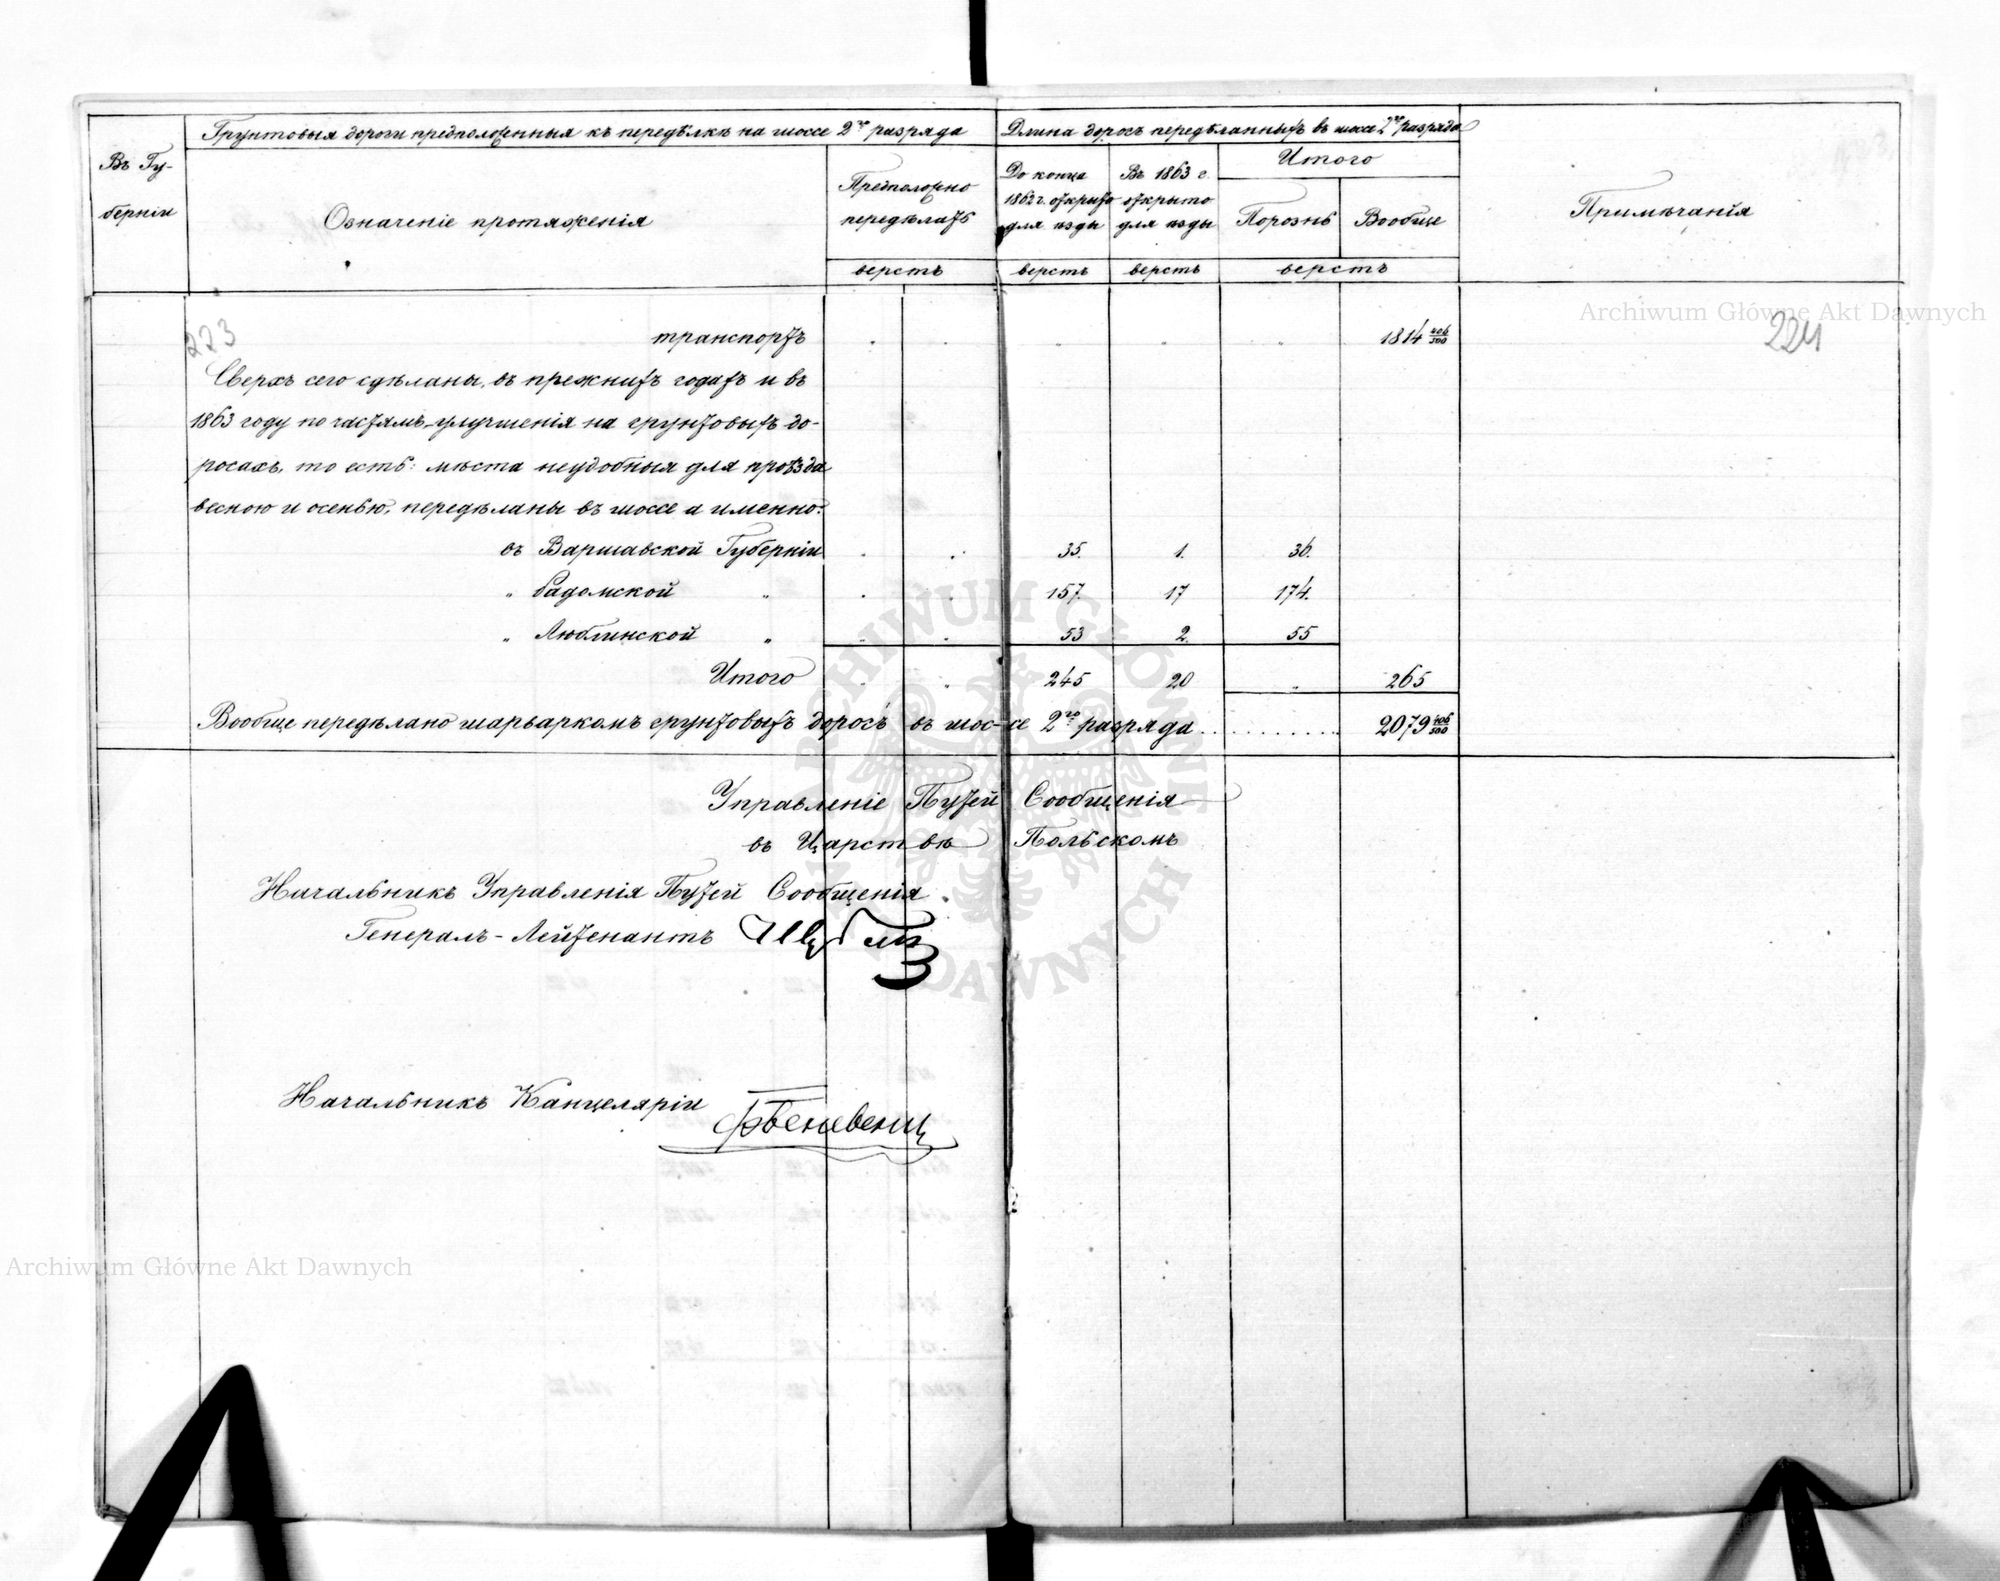 Грунтовыя дороги предположенныя къ передѣлкѣ на шоссе 2го разряда
Длина дорогъ передѣланныхъ въ шоссе 2го разряда
Въ Гу-
берніи
Означеніе протяженія
Предположено
передѣлать
До конца
1862 г. открыто
для ѣзды
Въ 1863 г.
открыто
для ѣзды
Итого
Порознь
Вообще
Примѣчанія
верстъ
верстъ
верстъ
верстъ
223
224
транспортъ 1814 406/500
Сверхъ сего сдѣланы, въ прежнихъ годахъ и въ
1863 году по частямъ, улучшенія на грунтовыхъ до-
рогахъ, то есть: мѣста неудобныя для проѣзда
весною и осенью, передѣланы въ шоссе а именно:
въ Варшавской Губерніи 35. 1. 36.
" Радомской " 157. 17 174.
" Люблинской " 53 2. 55
Итого 245 20 " 265
Вообще передѣлано шарваркомъ грунтовыхъ дорогъ въ шос-се 2го разряда 2079 406/500
Управленіе Путей Сообщенія
въ Царствѣ Польскомъ
Начальникъ Управленія Путей Сообщенія
Генералъ-Лейтенантъ
Начальникъ Канцеляріи
Archiwum Główne Akt Dawnych
Archiwum Główne Akt Dawnych
ARCHIWUM GŁÓWNE AKT DAWNYCH